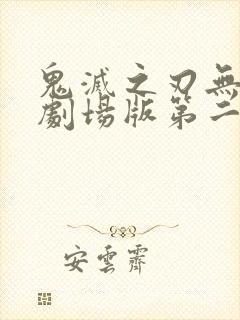 鬼滅之刃無
劇場版第二
安雲霽